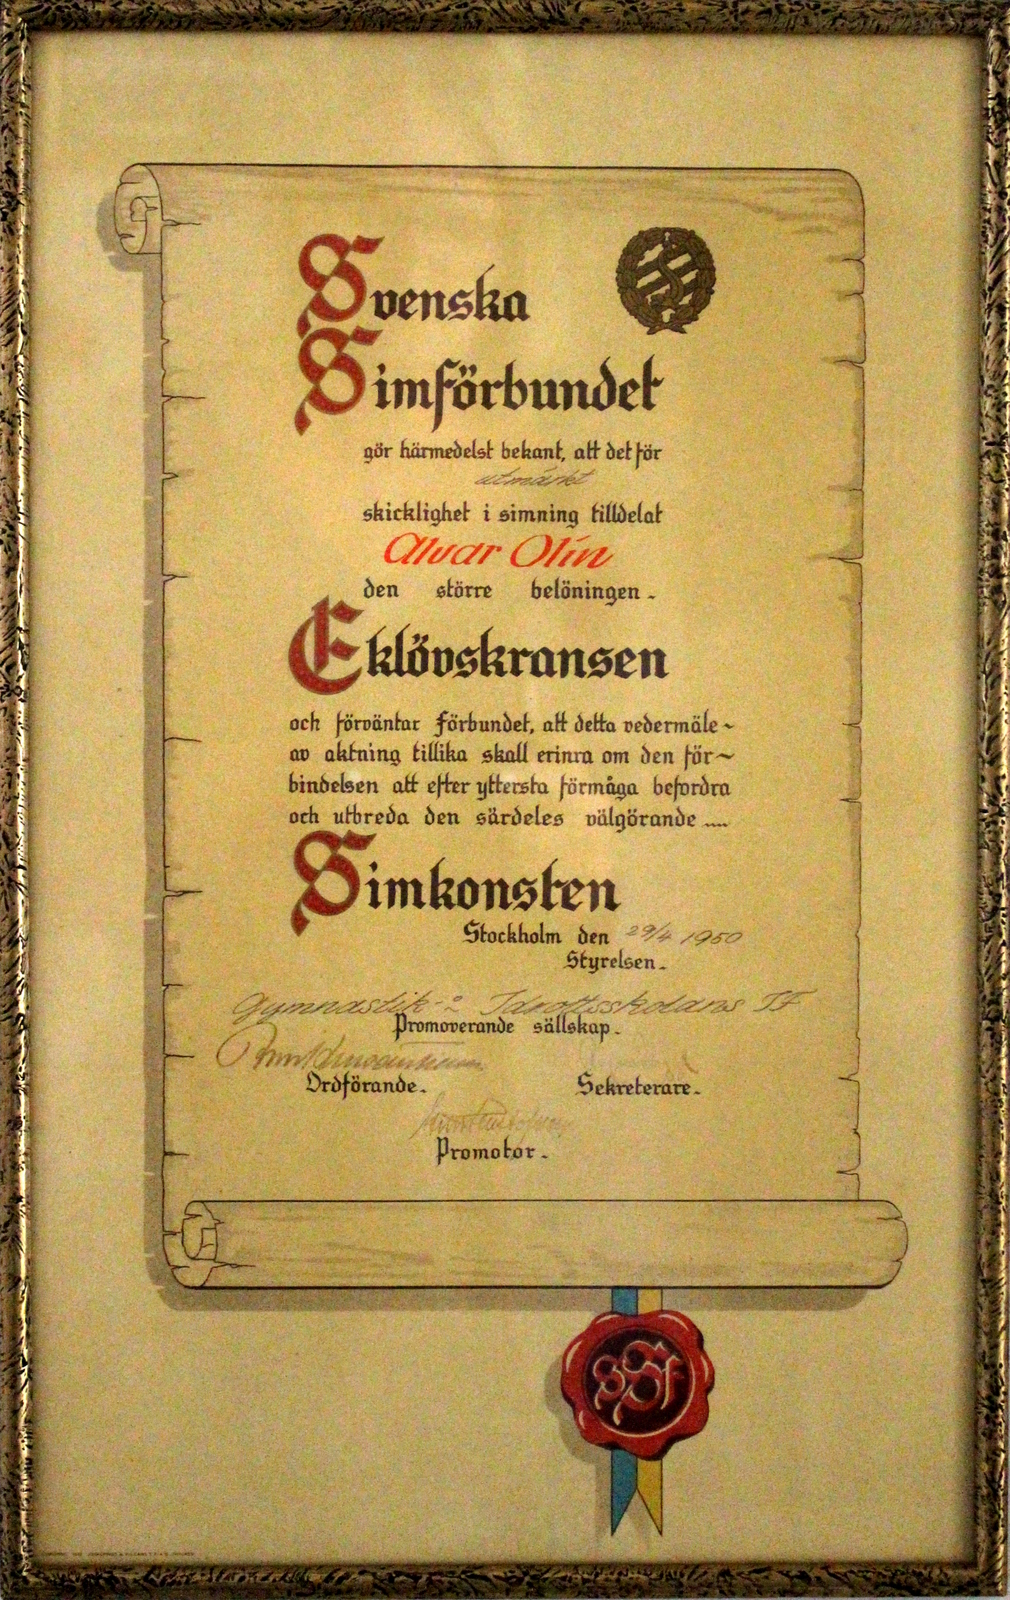 Svenska
Simförbundet
gör härmedelst bekant, att det för
utmärkt
skicklighet i simning tilldelat
Alvar Olin
den större belöningen.
Eklövskransen
och förväntar förbundet, att detta vedermäle~
av aktning tillika skall erinra om den för~
bindelsen att efter yttersta förmåga befordra
och utbreda den särdeles välgörande ....
Simkonsten
Stockholm den 29/4 1950
Styrelsen.
Gymnastik- o Idrottsskolans IF
Promoverande sällskap.
Ordförande. Sekreterare.
Promotor.
SSF